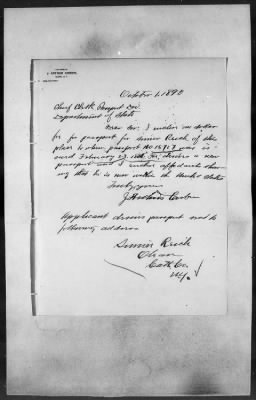 October 1, 1892
Chief Clerk Passport Div
Department of State
Dear Sir: I enclose one dollar
fee for passport for Simon Ruch of this
place to whom passport No 16717 was is-
sued February 23, He desires a new
passport and I enclose affidavits show-
ing that he is now within the United States
Truly yours
Applicant desires passport sent to
following address
Simon Ruch
Olean
Catt Co.
N.Y.